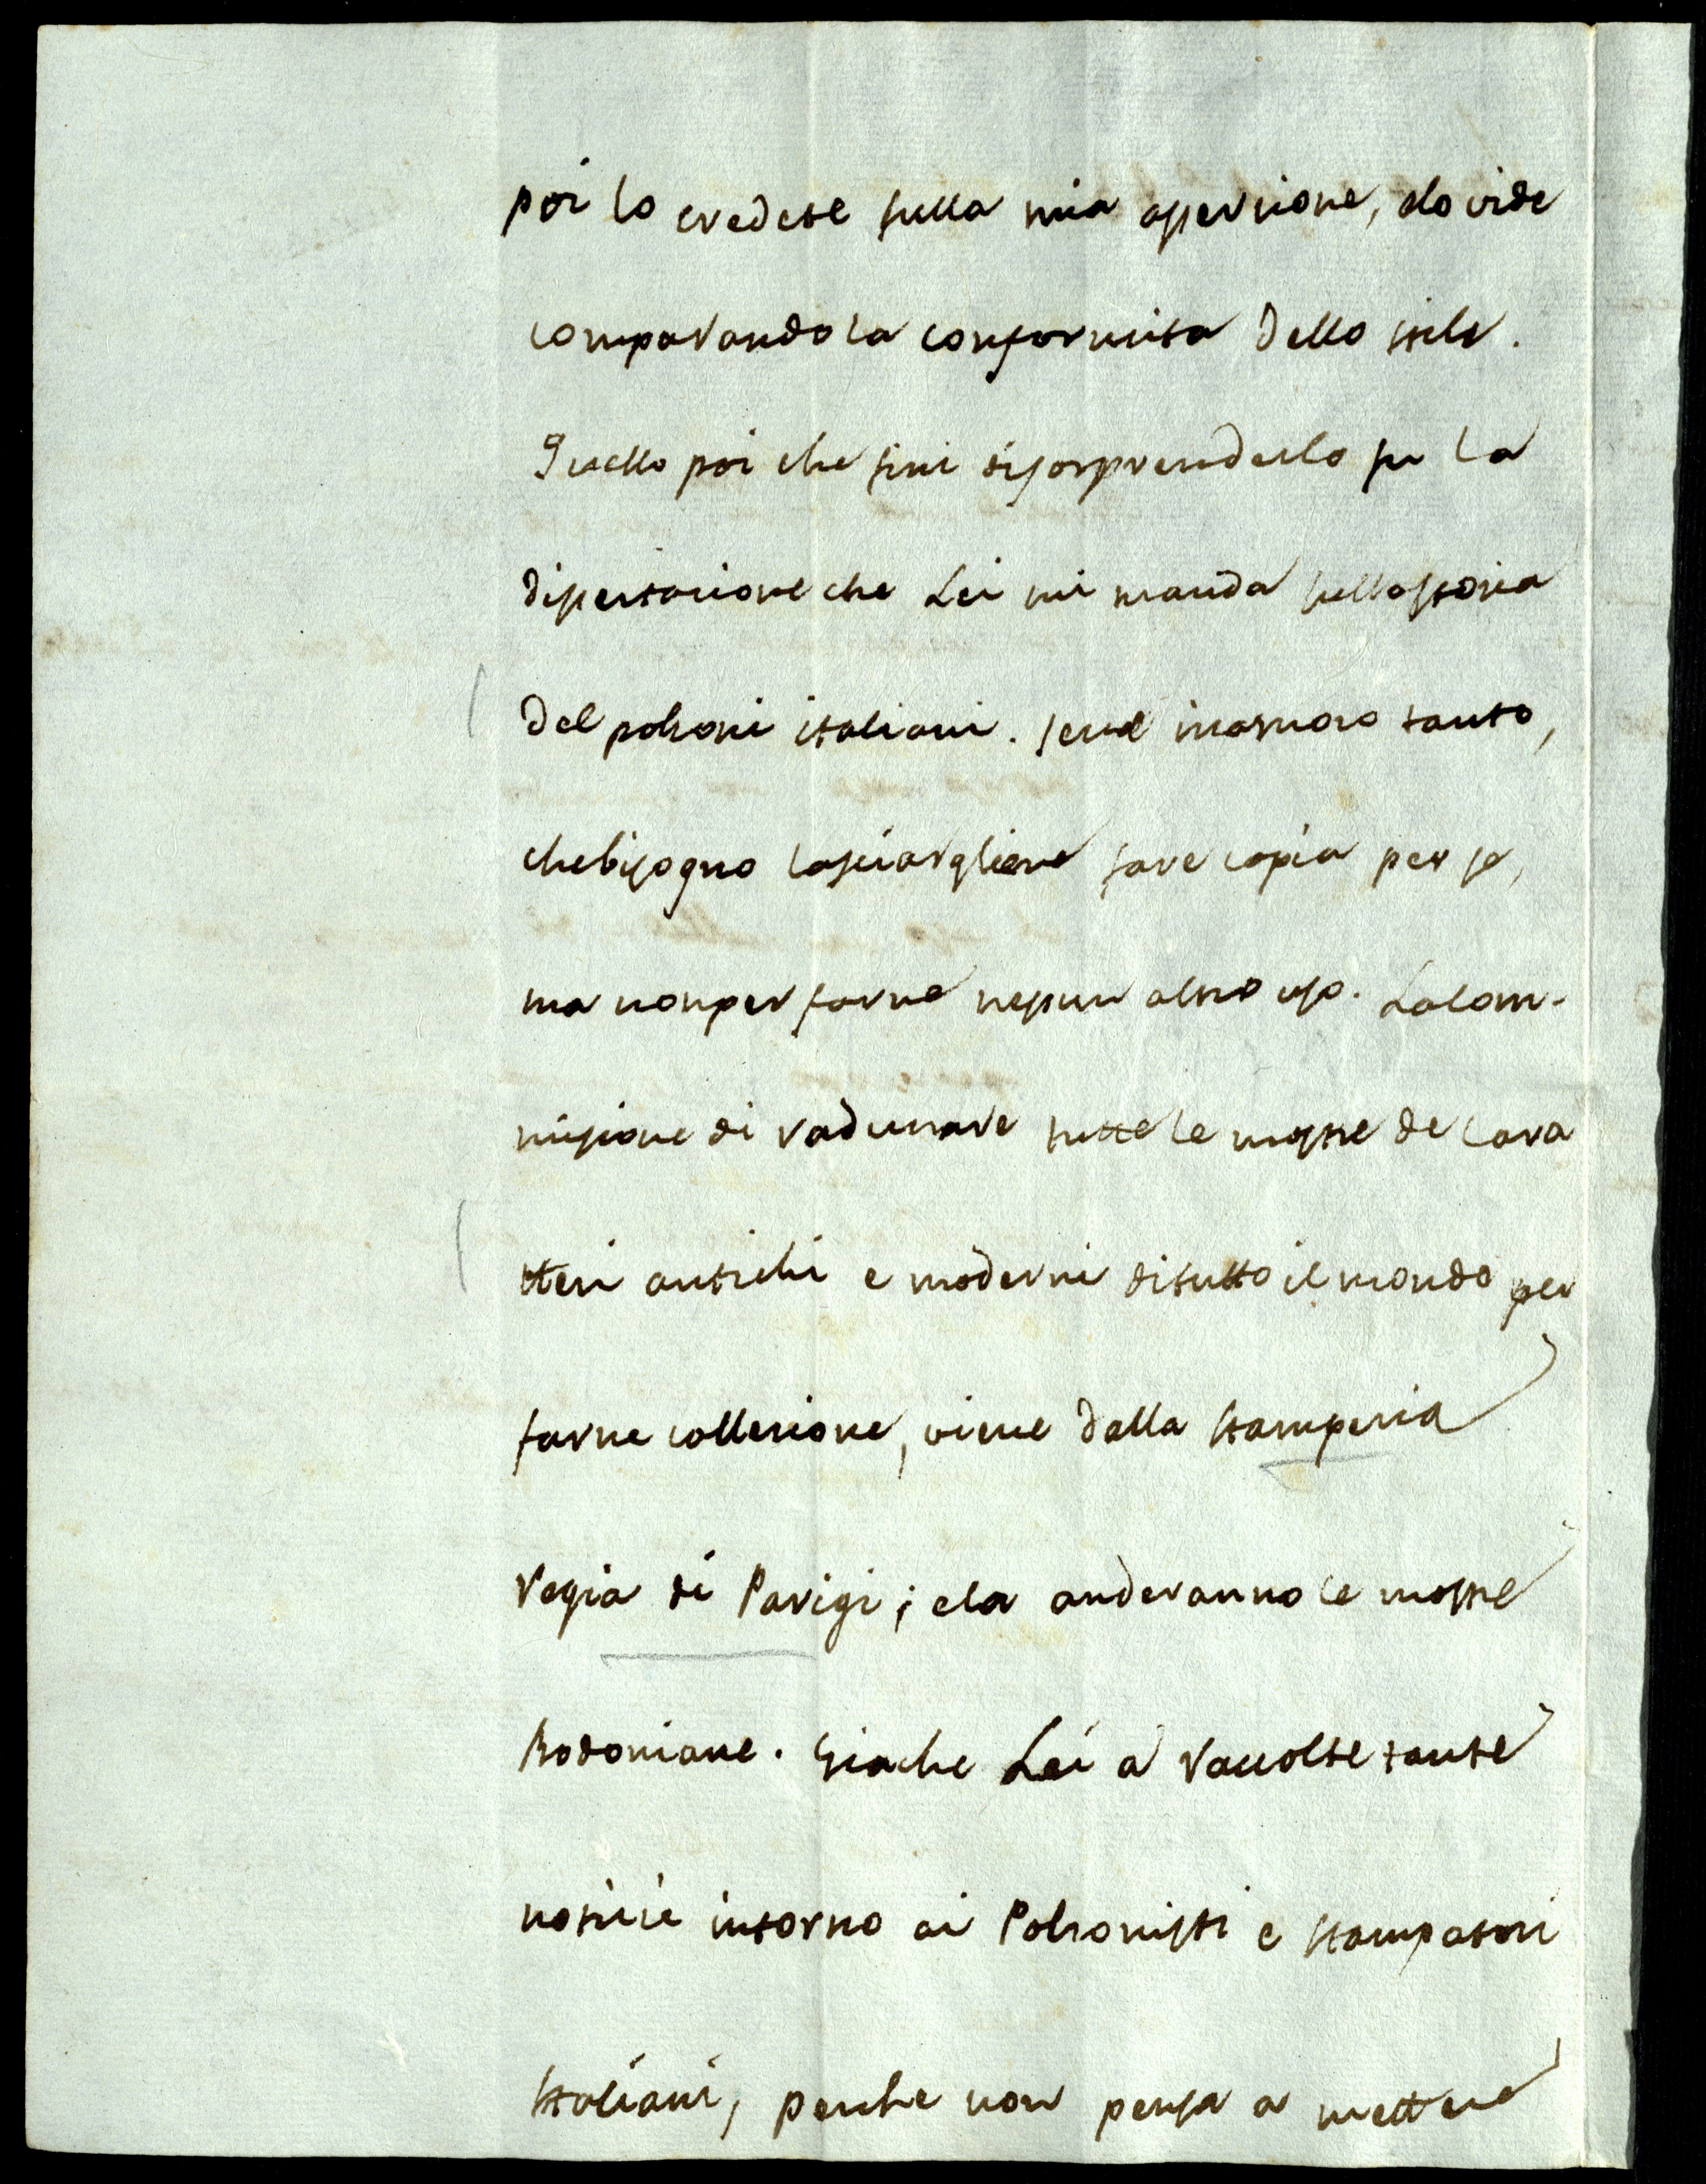 poi lo credete sulla mia asserzione, e lo vide
comparando la conformita dello stile.
Quello poi che fini di sorprenderlo fu la
dissertazione che Lei mi manda sulla storia
del polzoni italiani. se ne inamoro tanto,
che bisogno lasciargliene fare copia per se,
ma non per farne nessun altro uso. La com-
missione di radunare tutte le mostre de cara
tteri antichi e moderni di tutto il mondo per
farne collezione, viene dalla stamperia
Regia di Parigi; e la anderanno le mostre
Bodoniane. Giache Lei a raccolte tante
notizie intorno ai Polzonisti e stampatori
Italiani, perche non pensa a mettere